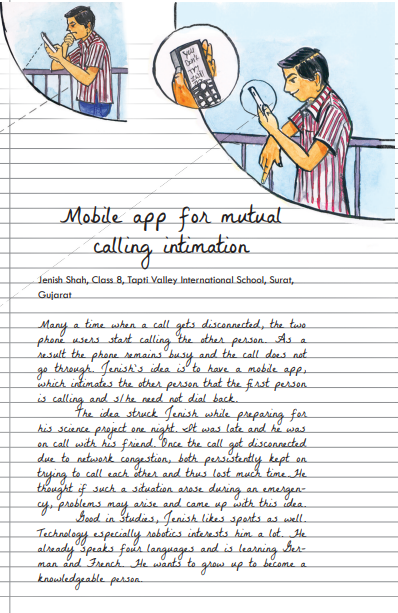 you
Don't
try
Mobile app for mutual
calling intimation
Jenish Shah, Class 8, Tapti Valley International School, Surat,
Gujarat
Many a time when a call gets disconnected, the two
phone users start calling the other person. As a
result the phone remains busy and the call does not
go through. Jenish's idea is to have a mobile app,
which intimates the other person that the first person
is calling and s/he need not dial back.
The idea struck Jenish while preparing for
his science project one night. It was late and he was
on call with his friend. Once the call got disconnected
due to network congestion, both persistently kept on
trying to call each other and thus lost much time. He
thought if such a situation arose during an emergen-
cy, problems may arise and came up with this idea.
Good in studies, Jenish likes sports as well.
Technology especially robotics interests him a lot. He
already speaks four languages and is learning Ger-
man and French. He wants to grow up to become a
knowledgeable person.